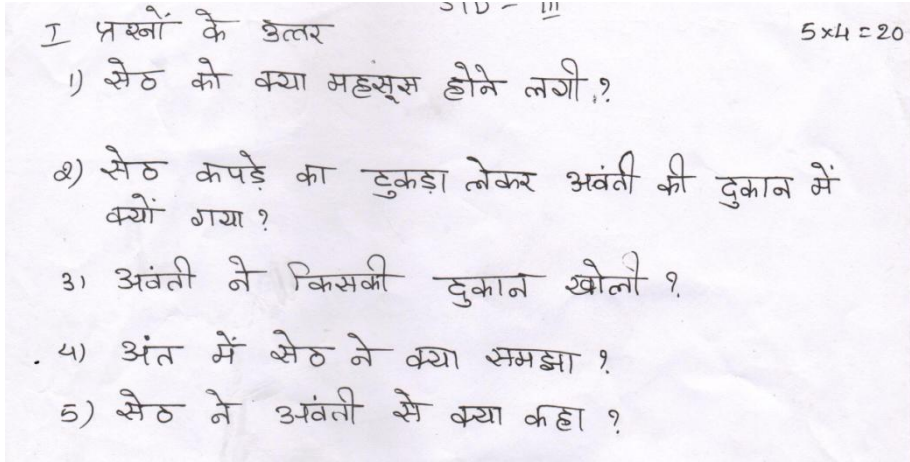 STD - III
I प्रश्नों के उत्तर 5×4=20
1) सेठ को क्या महसूस होने लगी ?
2) सेठ कपड़े का टुकड़ा लेकर अवंती की दुकान में
क्यों गया ?
3) अवंती ने किसकी दुकान खोली ?
4) अंत में सेठ ने क्या समझा ?
5) सेठ ने अवंती से क्या कहा ?